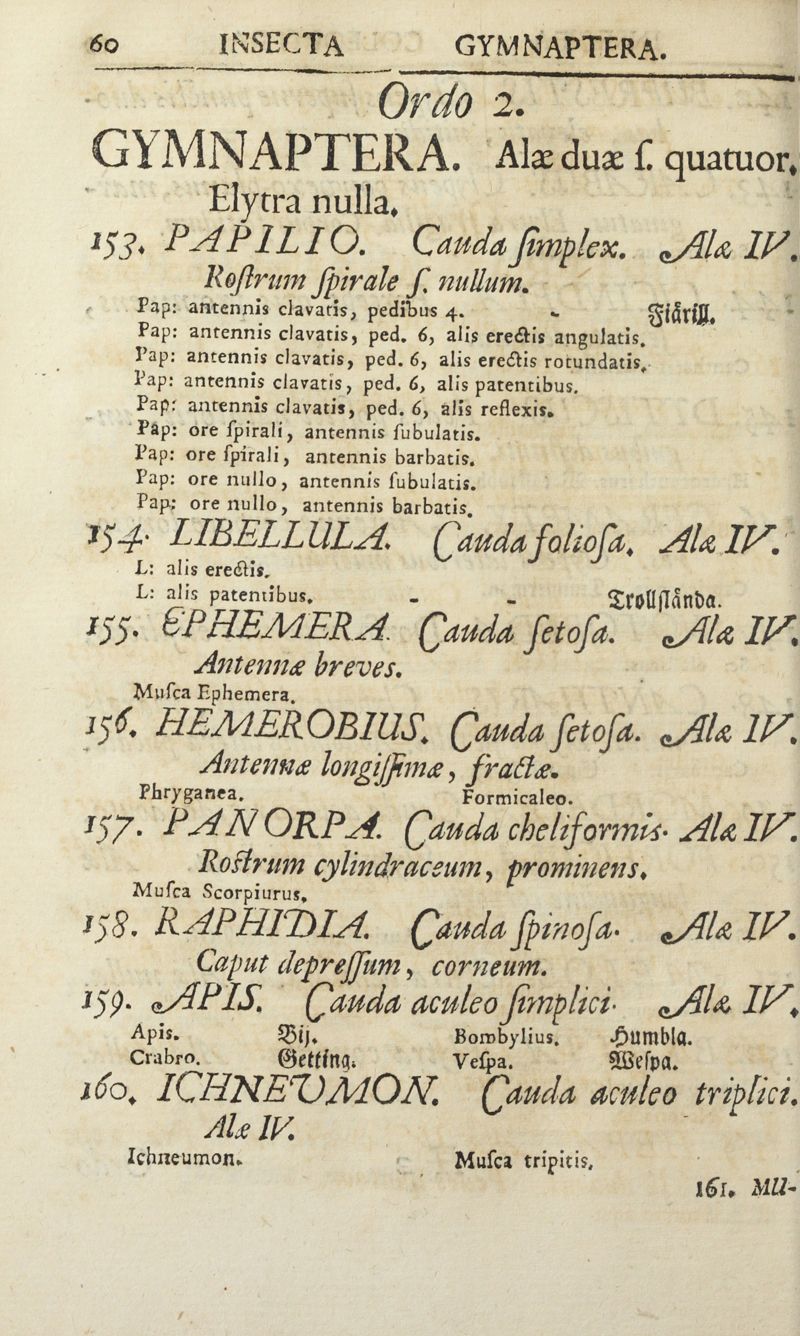 60 INSECTA GYMNAPTERA.
Ordo 2.
GYMNAPTERA. Alæ duæ ſ. quatuor,
Elytra nulla,
153. PAPILIO. Cauda ſimplex. Alæ IV.
Roſtrum ſpirale ſ. nullum.
Pap: antennis clavatis, pedibus 4. - Fiäril.
Pap: antennis clavatis, ped. 6, alis erectis angulatis.
Pap: antennis clavatis, ped. 6, alis erectis rotundatis,
Pap: antennis clavatis, ped. 6, alis patentibus.
Pap: antennis clavatis, ped. 6, alis reflexis.
Pap: ore ſpirali, antennis ſubulatis.
Pap: ore ſpirali, antennis barbatis.
Pap: ore nullo, antennis ſubulatis.
Pap: ore nullo, antennis barbatis.
154. LIBELLULA. Cauda folioſa. Alæ IV.
L: alis erectis.
L: alis patentibus. - - Trollſlända.
155. EPHEMERA. Cauda ſetoſa. Alæ IV.
Antennæ breves.
Muſca Ephemera.
156. HEMEROBIUS. Cauda ſetoſa. Alæ IV.
Antennæ longiſſimæ, fractæ.
Phryganea. Formicaleo.
157. PANORPA. Cauda cheliformis. Alæ IV.
Roſtrum cylindraceum, prominens.
Muſca Scorpiurus.
158. RAPHIDIA. Cauda ſpinoſa. Alæ IV.
Caput depreſſum, corneum.
159. APIS. Cauda aculeo ſimplici. Alæ IV.
Apis. Bij. Bombylius. Humbla.
Crabro. Getting. Veſpa. Weſpa.
160. ICHNEUMON. Cauda aculeo triplici.
Alæ IV.
Ichneumon. Muſca tripitis,
161. MU-